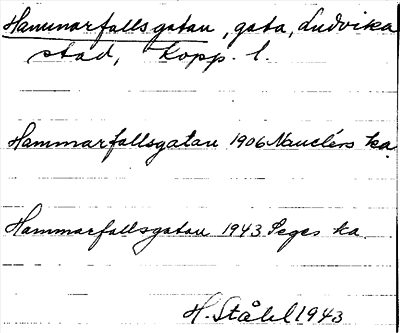 Hammarfallsgatan, gata, Ludvika
stad, Kopp. l.
Hammarfallsgatan 1906 Nauclérs ka
Hammarfallsgatan 1943 Seges ka.
H. Ståhl 1943